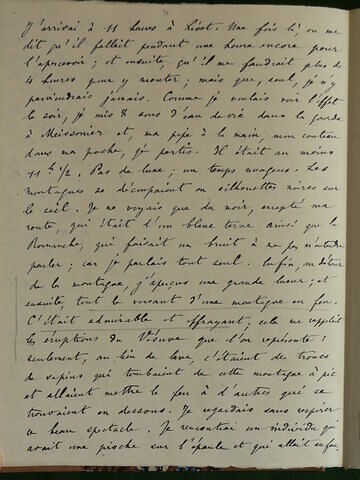 J'arrivai à 11 heures à Livet. Une fois là, on me
dit qu'il fallait pendant une heure encore pour
l'apercevoir ; et ensuite, qu'il me faudrait plus de
4 heures pour y monter ; mais que, seul, je n'y
parviendrais jamais. Comme je voulais voir l'effet
le soir, je mis 8 sous d'eau de vie dans la gourde
à Meissonier et, ma pipe à la main, mon couteau
dans ma poche, je partis. Il était au moins
11 h 1/2. Pas de lune ; un temps nuageux. Les
montagnes se découpaient en silhouettes noires sur
le ciel. Je ne voyais que du noir, excepté ma
route, qui était d'un blanc terne ainsi que la
Romanche, qui faisait un bruit à ne pas m'entendre
parler ; car je parlais tout seul. Enfin, au détour
de la montagne, j'aperçus une grande lueur ; et
ensuite, tout le versant d'une montagne en feu.
C'était admirable et effrayant ; cela me rappelait
les éruptions du Vésuve que l'on représente :
seulement, au lieu de lave, c'étaient des troncs
de sapins qui tombaient de cette montagne à pic
et allaient mettre le feu à d'autres qui se
trouvaient en dessous. Je regardais sans respirer
ce beau spectacle. Je rencontrai un individu qui
avait une pioche sur l'épaule et qui allait au feu.